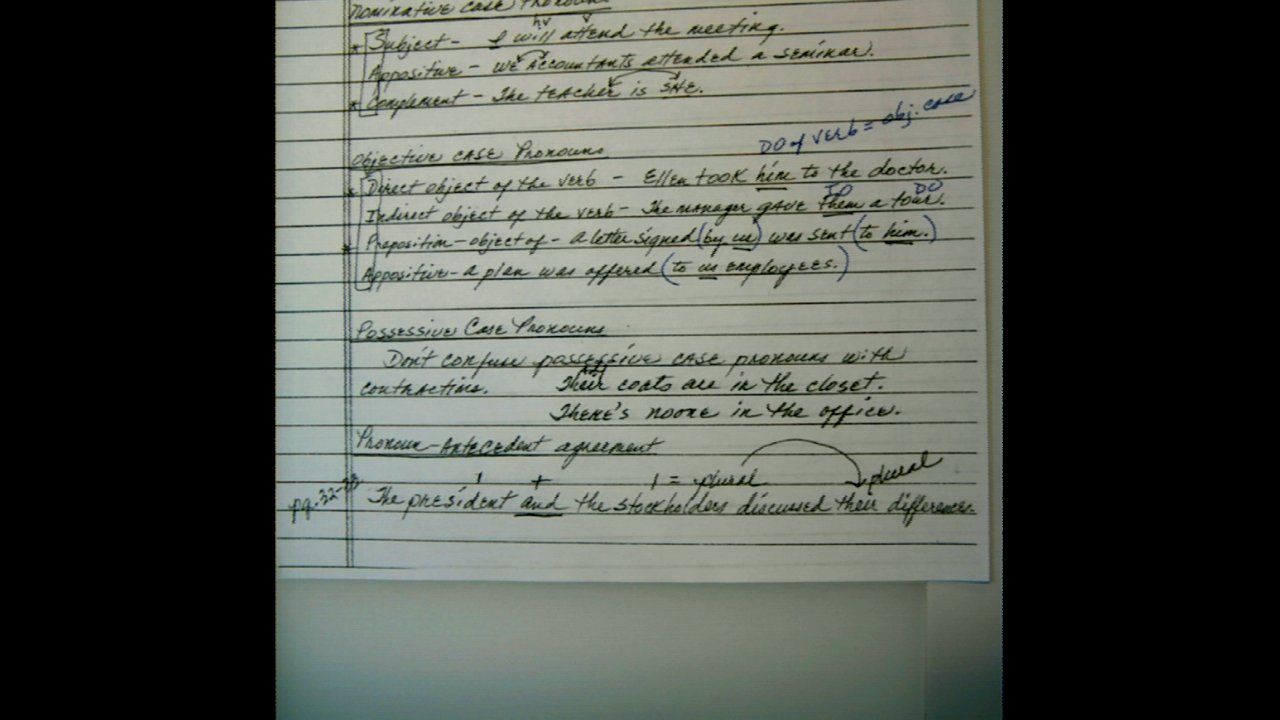 Nominative Case Pronouns
hv v
* Subject - I will attend the meeting.
Appositive - We accountants attended a seminar.
* Complement - The teacher is she.
DO of verb = obj. case
Objective Case Pronouns
* Direct object of the verb - Ellen took him to the doctor.
IO DO
Indirect object of the verb - The manager gave them a tour.
* Preposition - object of - A letter signed (by us) was sent (to him.)
Appositive - A plan was offered (to us employees.)
Possessive Case Pronouns
Don't confuse possessive case pronouns with
contractions. Their coats are in the closet.
There's no one in the office.
Pronoun-Antecedent agreement
1 + 1 = plural plural
The president and the stockholders discussed their differences.